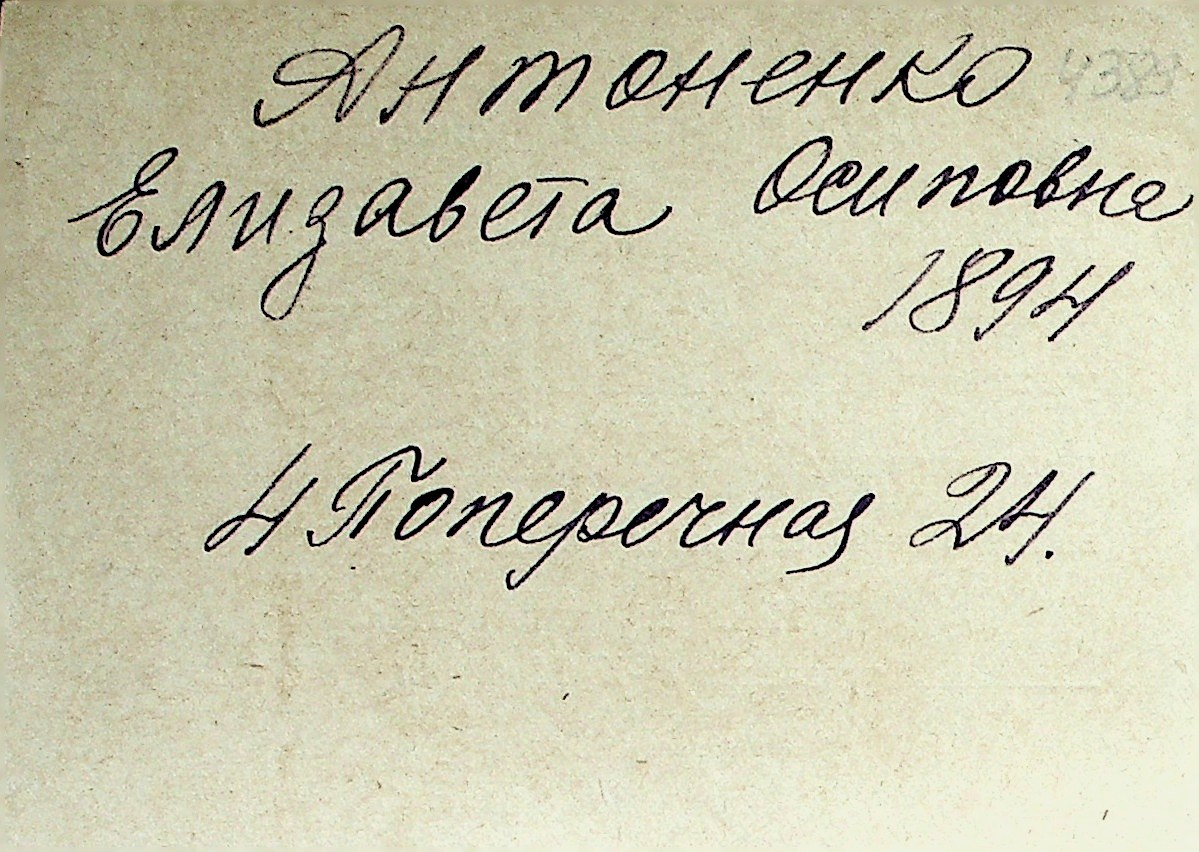 Антоненко
Елизавета Осиповна
1894
4 Поперечная 24.